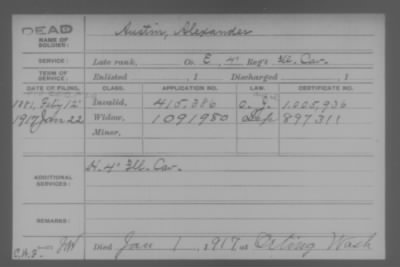 DEAD
NAME OF SOLDIER: Austin, Alexander
SERVICE: Late rank, Co. E, 4" Reg't Ill. Cav.
TERM OF SERVICE: Enlisted , 1 Discharged , 1
DATE OF FILING. CLASS. APPLICATION NO. LAW. CERTIFICATE NO.
1881, Feby 12 Invalid, 415,386 1.005,936
1917 Jan 22 Widow, 1091950 897311
Minor,
ADDITIONAL SERVICES: H. 4" Ill. Cav.
REMARKS:
Died Jan 1, 1917, at Orting Wash